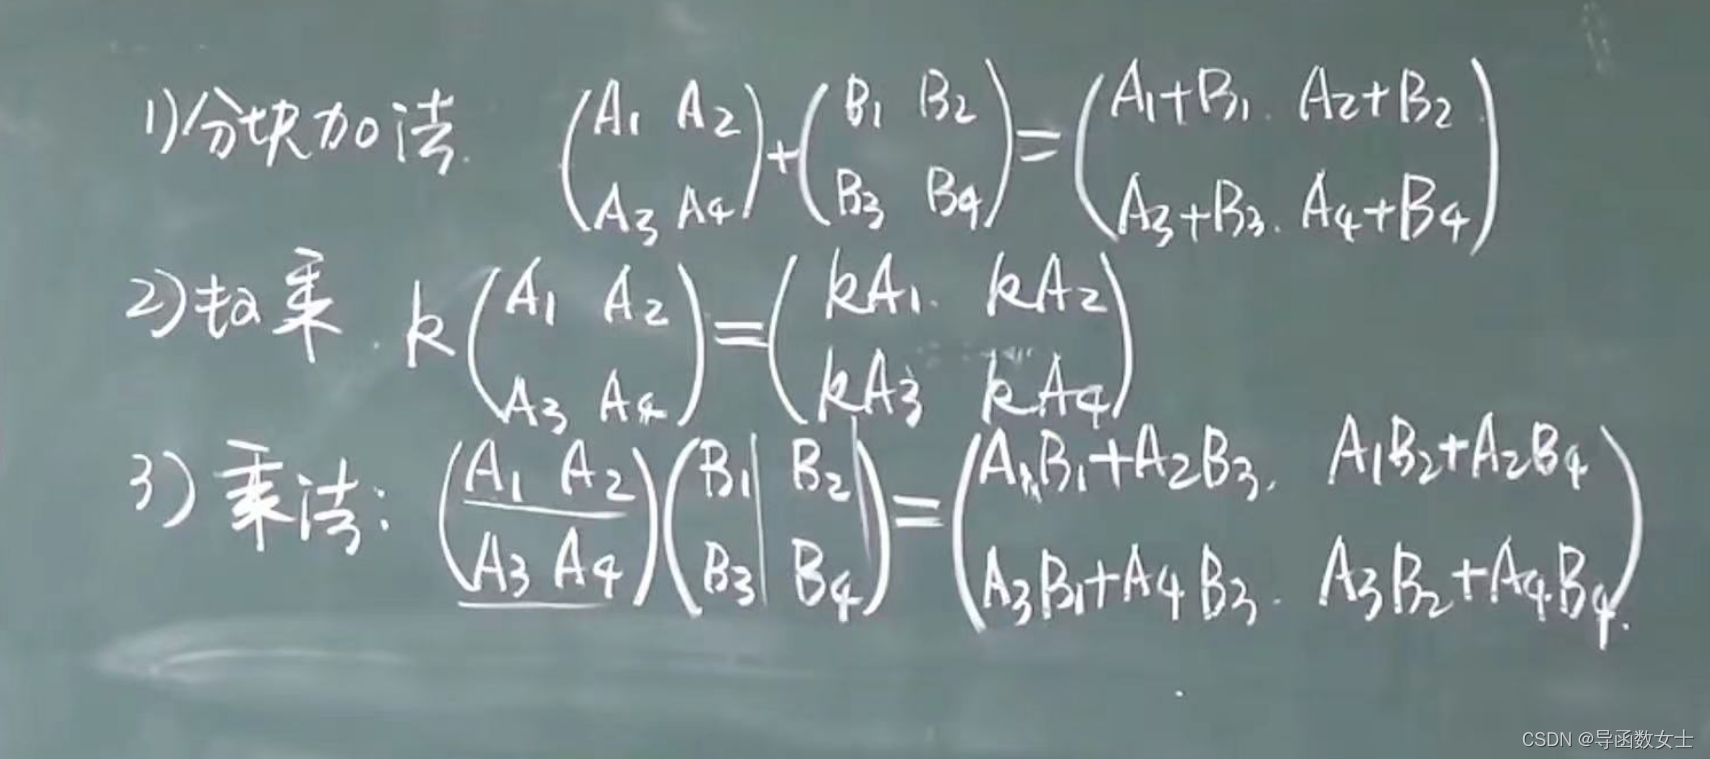 1)分块加法. (A₁ A₂ A₃ A₄)+(B₁ B₂ B₃ B₄)=(A₁+B₁. A₂+B₂ A₃+B₃. A₄+B₄)
2)数乘. k(A₁ A₂ A₃ A₄)=(kA₁. kA₂ kA₃ kA₄)
3)乘法: (A₁ A₂ A₃ A₄)(B₁ B₂ B₃ B₄)=(A₁B₁+A₂B₃. A₁B₂+A₂B₄ A₃B₁+A₄B₃. A₃B₂+A₄B₄).
CSDN @导函数女士